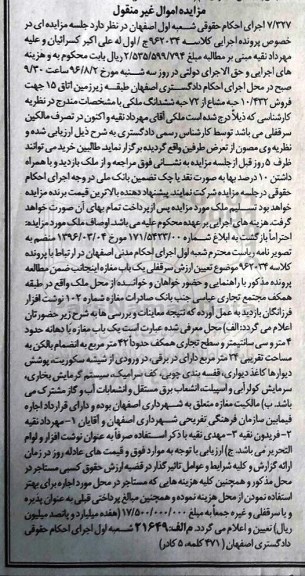 مزایده اموال غیر منقول
۷/۳۲۷ اجرای احکام حقوقی شعبه اول اصفهان در نظر دارد جلسه مزایده ای در
خصوص پرونده اجرایی کلاسه ۹۶۲۰۳۴ ج / اول له علی اکبر کسرائیان و علیه
مهرداد نقیه مبنی بر مطالبه مبلغ ۲/۵۳۵/۵۹۹/۷۹۴ ریال بابت محکوم به و هزینه
های اجرایی و حق الاجرای دولتی در روز سه شنبه مورخ ۹۶/۸/۲ ساعت ۹/۳۰
صبح در محل اجرای احکام دادگستری اصفهان طبقه زیرزمین اتاق ۱۵ جهت
فروش ۱۰/۴۳۲ حبه مشاع از ۷۲ حبه ششدانگ ملکی با مشخصات مندرج در نظریه
کارشناسی که ذیلاً درج شده است ملکی آقای مهرداد نقیه و اکنون در تصرف مالکین
سرقفلی می باشد توسط کارشناس رسمی دادگستری به شرح ذیل ارزیابی شده و
نظریه وی مصون از تعرض طرفین واقع گردیده برگزار نماید. طالبین خرید می توانند
ظرف ۵ روز قبل از جلسه مزایده به نشانی فوق مراجعه و از ملک بازدید و با همراه
داشتن ۱۰ درصد بها به صورت نقد یا چک تضمین بانک ملی در وجه اجرای احکام
حقوقی در جلسه مزایده شرکت نمایند. پیشنهاد دهنده بالاترین قیمت برنده مزایده
خواهد بود تسلیم ملک مورد مزایده پس از پرداخت تمام بهای آن صورت خواهد
گرفت. هزینه های اجرایی بر عهده محکوم علیه می باشد. اوصاف ملک مورد مزایده:
احتراماً بازگشت به ابلاغ شماره ۱۷۱/۵۴۲۳/۰۰ مورخ ۱۳۹۶/۰۳/۰۴ منضم به
تصویر نامه ریاست محترم شعبه اول اجرای احکام مدنی اصفهان در ارتباط با پرونده
کلاسه ۹۶۲۰۳۴ موضوع تعیین ارزش سرقفلی یک باب مغازه اینجانب ضمن مطالعه
پرونده مذکور با راهنمایی و حضور خواهان و خوانده از محل ملک واقع در طبقه
همکف مجتمع تجاری عباسی جنب بانک صادرات مغازه شماره ۱۰۲ نوشت افزار
فرزانگان بازدید به عمل آورده که نتیجه معاینات و بررسی ها به شرح زیر حضورتان
اعلام می گردد: الف) محل معرفی شده عبارت است یک باب مغازه با دهانه حدود
۴ متر و سی سانتیمتر و سطح تجاری همکف حدوداً ۴۲ متر مربع به انضمام بالکن به
مساحت تقریبی ۳۴ متر مربع دارای در برقی، در ورودی از شیشه سکوریت، پوشش
دیوارها کاغذ دیواری، قفسه بندی چوبی، کف سرامیک، سیستم گرمایش بخاری،
سرمایش کولر آبی و اسپیلت، انشعاب برق مستقل و انشعابات آب و گاز مشترک می
باشد. ب) مالکیت مغازه متعلق به شهرداری اصفهان بوده و دارای قرارداد اجاره
فیمابین سازمان فرهنگی تفریحی شهرداری اصفهان و آقایان ۱- مهرداد نقیه
۲- فریدون نقیه ۳- مهدی نقیه با ذکر استفاده صرفاً به عنوان نوشت افزار و لوام
التحریر می باشد. ج) ارزیابی با توجه به موارد فوق و قیمت های عادله روز در زمان
ارائه گزارش و کلیه شرایط و عوامل تاثیر گذار در قضیه ارزش حقوق کسبی مستاجر در
محل مذکور و همچنین کلیه هزینه هایی که مستاجر در محل مورد اجاره برای بهتر
استفاده نمودن از محل هزینه نموده و همچنین مبالغ پرداختی قبلی به عنوان پذیره
و یا سرقفلی و غیره جمعاً به مبلغ ۱۷/۵۰۰/۰۰۰/۰۰۰ (هفده میلیارد و پانصد میلیون
ریال) تعیین و اعلام می گردد. م الف: ۲۱۶۴۹ شعبه اول اجرای احکام حقوقی
دادگستری اصفهان (۴۷۱ کلمه، ۵ کادر)